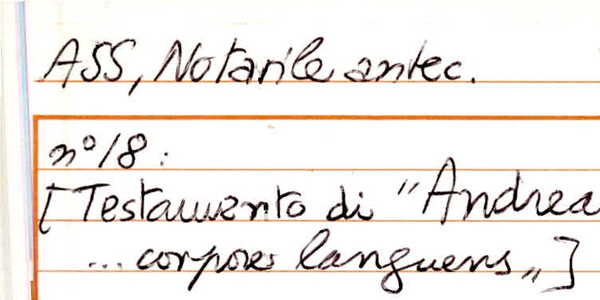 ASS, Notarile antec.
n° 18:
[Testamento di "Andrea
... corpore languens"]